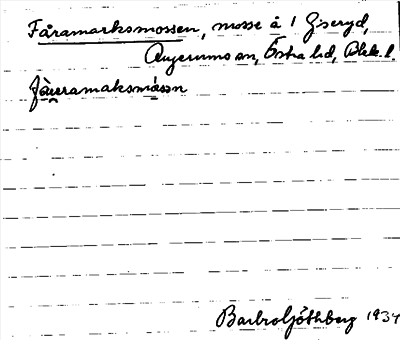 Fåramarksmossen, mosse å 1 Ziseryd,
Augerums sn, Östra hd, Blek. l.
fåuramaksmåsn
Barbro Göthberg 1934